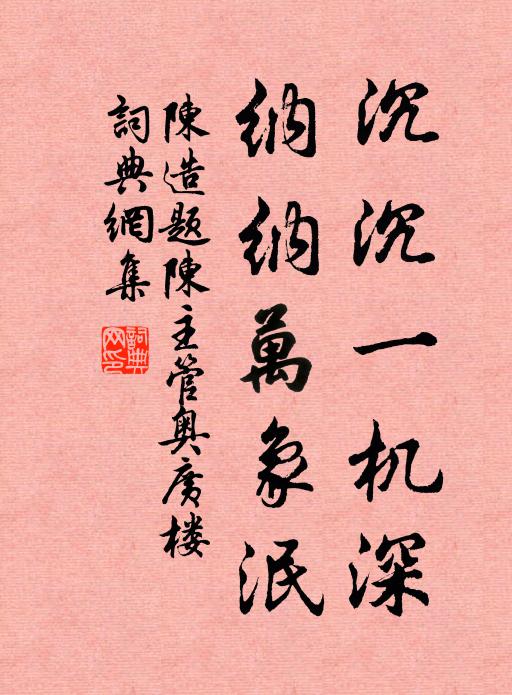 沉沉一机深
納納萬象泯
陳造題陳主管奥廣楼
詞典網集
詞典网印